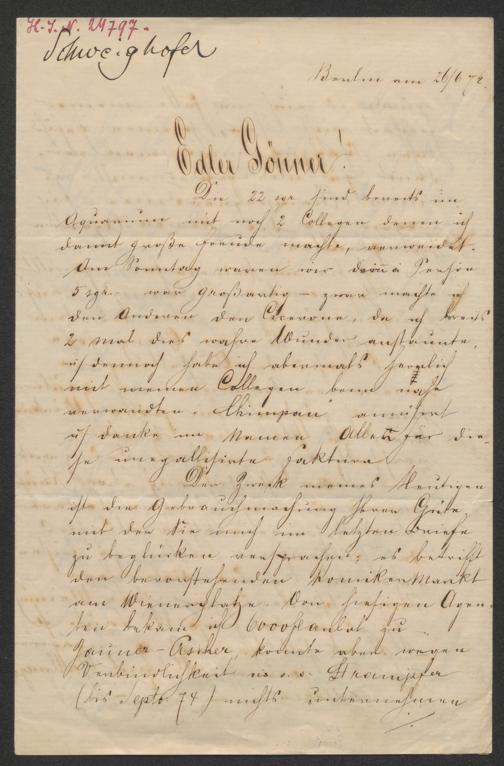 H. I. N. 24797.
Schweighofer
Berlin am 26/6 72.
Edler Gönner!
Die 22 sgr sind bereits im
Aquarium mit noch 2 Collegen denen ich
damit große Freude machte, verwendet.
Am Sonntag waren wir drinn à Person
5 sgr. war großartig – zwar machte ich
den Anderen den Cicerone, da ich bereits
2 mal dies wahre Wunder anstaunte,
dennoch habe ich abermals herzlich
mit meinen Collegen beim nahe
verwandten "Chimpan" amüsirt
danke im Namen Aller für die-
se Faktura
Der Zweck meines Heutigen
ist die Gebrauchmachung Ihrer Güte
mit der Sie mich im letzten Briefe
zu beglücken versprachen; es betrifft
den bevorstehenden Komiker Markt
am Wienerplatze. Von hiesigen Agen-
ten bekam ich zu
Jauner-Ascher, konnte aber wegen
Verbindlichkeit Strampfer
(bis Septb. 74) nichts unternehmen